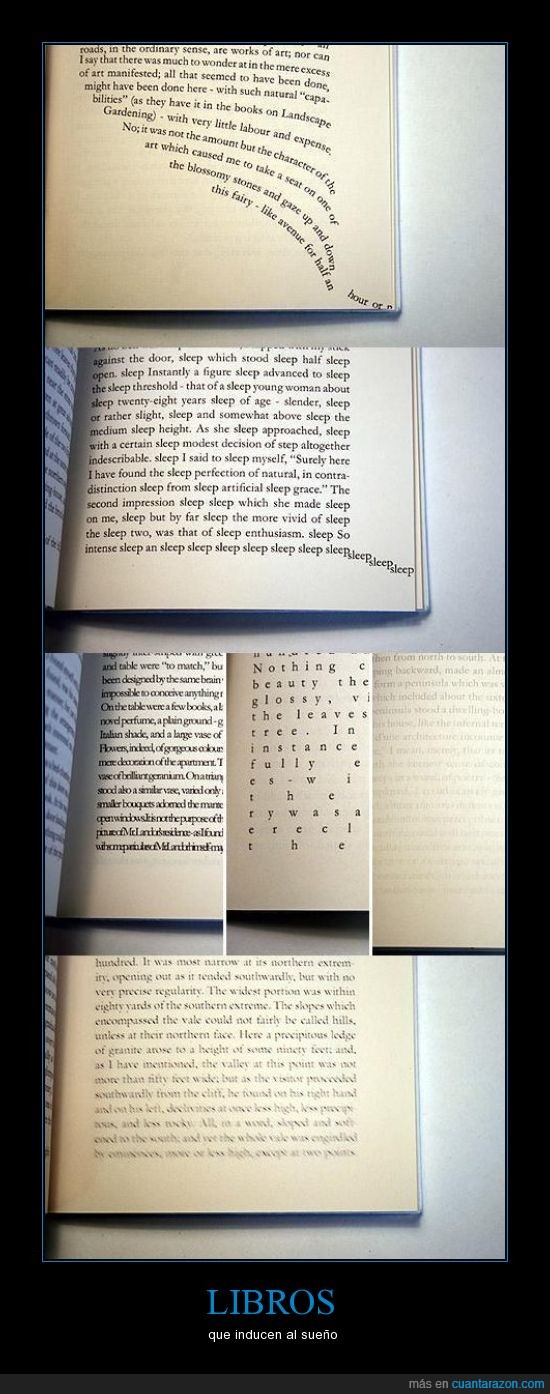 roads, in the ordinary sense, are works of art; nor can
I say that there was much to wonder at in the mere excess
of art manifested; all that seemed to have been done,
might have been done here - with such natural "capa-
bilities" (as they have it in the books on Landscape
Gardening) - with very little labour and expense.
No; it was not the amount but the character of the
art which caused me to take a seat on one of
the blossomy stones and gaze up and down
this fairy - like avenue for half an
hour or
against the door, sleep which stood sleep half sleep
open. sleep Instantly a figure sleep advanced to sleep
the sleep threshold - that of a sleep young woman about
sleep twenty-eight years sleep of age - slender, sleep
or rather slight, sleep and somewhat above sleep the
medium sleep height. As she sleep approached, sleep
with a certain sleep modest decision of step altogether
indescribable. sleep I said to sleep myself, "Surely here
I have found the sleep perfection of natural, in contra-
distinction sleep from sleep artificial sleep grace." The
second impression sleep sleep which she made sleep
on me, sleep but by far sleep the more vivid of sleep
the sleep two, was that of sleep enthusiasm. sleep So
intense sleep an sleep sleep sleep sleep sleep sleep sleep sleep sleep sleep
and table were "to match," bu
been designed by the same brain
impossible to conceive anything
On the table were a few books, a
novel perfume, a plain ground - g
Italian shade, and a large vase of
Flowers, indeed, of gorgeous colour
mere decoration of the apartment. T
vase of brilliant geranium. On a trian
stood also a similar vase, varied only
smaller bouquets adorned the mante
open windows. It is not the purpose of th
picture of Mr. Landor's residence - as I found
with some particulars of Mr. Landor himself - may
Nothing c
beauty the
glossy, vi
the leaves
tree. In
instance
fully e
es-wi
the
rywasa
erecl
the
then from north to south. At
ning backward, made an
form a peninsula which was
which included about the
peninsula stood a dwelling-
this house, like the infernal
hundred. It was most narrow at its northern extrem-
ity, opening out as it tended southwardly, but with no
very precise regularity. The widest portion was within
eighty yards of the southern extreme. The slopes which
encompassed the vale could not fairly be called hills,
unless at their northern face. Here a precipitous ledge
of granite arose to a height of some ninety feet; and,
as I have mentioned, the valley at this point was not
more than fifty feet wide; but as the visitor proceeded
southwardly from the cliff, he found on his right hand
and on his left, declivities at once less high, less precipi-
tous, and less rocky. All, in a word, sloped and soft-
ened to the south; and yet the whole vale was engirdled
by eminences, more or less high, except at two points.
LIBROS
que inducen al sueño
más en cuantarazon.com